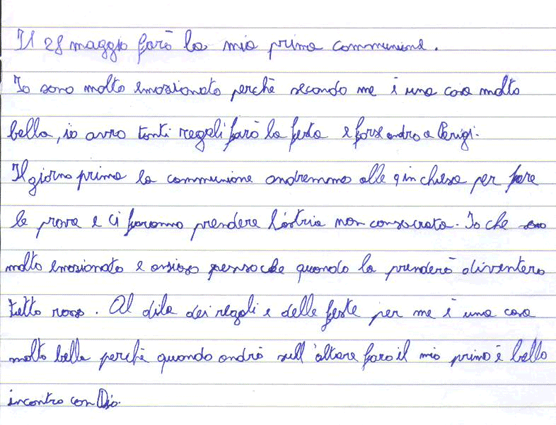 Il 28 maggio farò la mia prima communione.
Io sono molto emozionato perchè secondo me è una cosa molto
bella, io avro tanti regali farò la festa e forse andro a Parigi.
Il giorno prima la communione andremmo alle 9 in chiesa per fare
le prova e ci faranno prendere l'ostria non consacrata. Io che
molto emozionato e ansioso penso che quando la prenderò diventero
tutto rosso. Al dila dei regali e delle feste per me è una cosa
molto bella perchè quando andrò sull'altare faro il mio primo è bello
incontro con Dio.